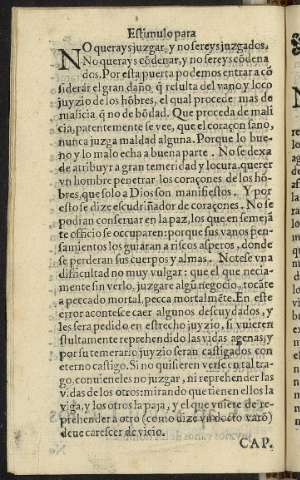 Estimulo para
NO querays juzgar, y no sereys juzgados.
No querays cõdenar, y no sereys cõdena
dos. Por esta puerta podemos entrar a cõ
siderar el gran daño, q̃ resulta del vano, y loco
juyzio de los hõbres, el qual procede mas de
malicia q̃ no de bõdad. Que proceda de mali
cia, patentemente se vee, que el coraçon sano,
nunca juzga maldad alguna. Porque lo bue
no, y lo malo echa a buena parte. No se dexa
de atribuyr a gran temeridad y locura, querer
vn hombre penetrar los coraçones de los hõ-
bres, que solo a Dios son manifiestos. Y por
esto se dize escudriñador de coraçones. No se
podran conseruar en la paz, los que en semejã
te officio se occuparen: porque sus vanos pen-
samientos los guiaran a riscos asperos, donde
se perderan sus cuerpos y almas. Notese vna
difficultad no muy vulgar: que el que necia-
mente sin verlo, juzgare algũ negocio, tocãte
a peccado mortal, pecca mortalmẽte. En este
error acontesce caer algunos descuydados, y
les sera pedido en estrecho juyzio, si vuieren
stultamente reprehendido las vidas agenas, y
por su temerario juyzio seran castigados con
eterno castigo. Si no quisieren verse en tal tra-
go, conuieneles no juzgar, ni reprehender las
vidas de los otros: mirando que tienen ellos la
viga, y los otros la paja, y el que vuiere de re-
prehender a otro (como dize vn docto varõ)
deue carescer de vicio.
CAP.